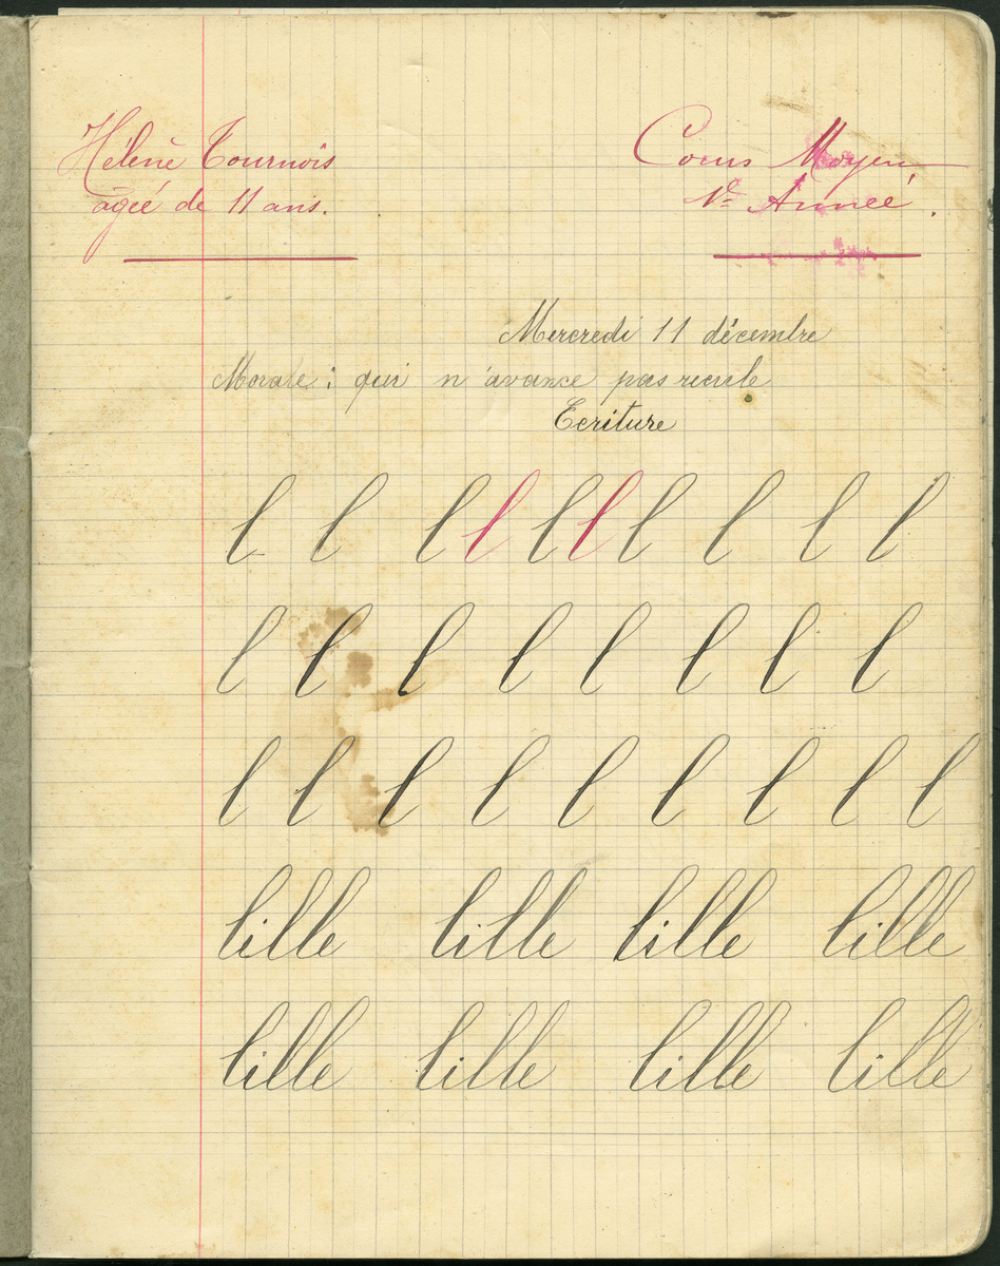 Hélène Tournois
agée de 11 ans.
Cours Moyen,
1re Année.
Mercredi 11 décembre
Morale : qui n'avance pas recule
Ecriture
l l l l l l l l l l
l l l l l l l l
l l l l l l l l l
lille lille lille lille
lille lille lille lille